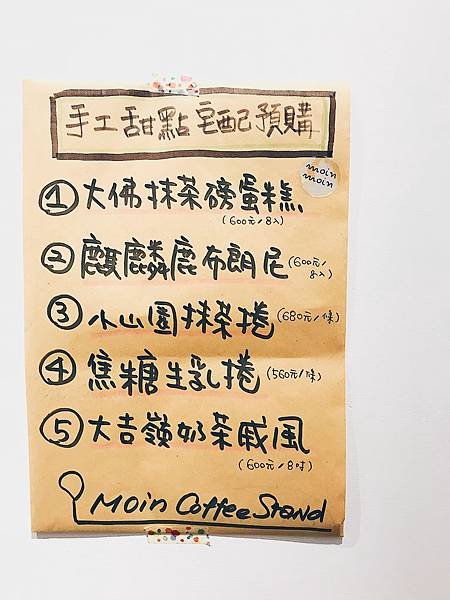 手工甜點宅配預購
moin
moin
① 大佛抹茶磅蛋糕
(600元/8入)
② 麒麟鹿布朗尼 (600元/
8入)
③ 小山園抹茶捲 (680元/條)
④ 焦糖生乳捲 (560元/條)
⑤ 大吉嶺奶茶戚風
(600元/8吋)
Moin Coffee Stand